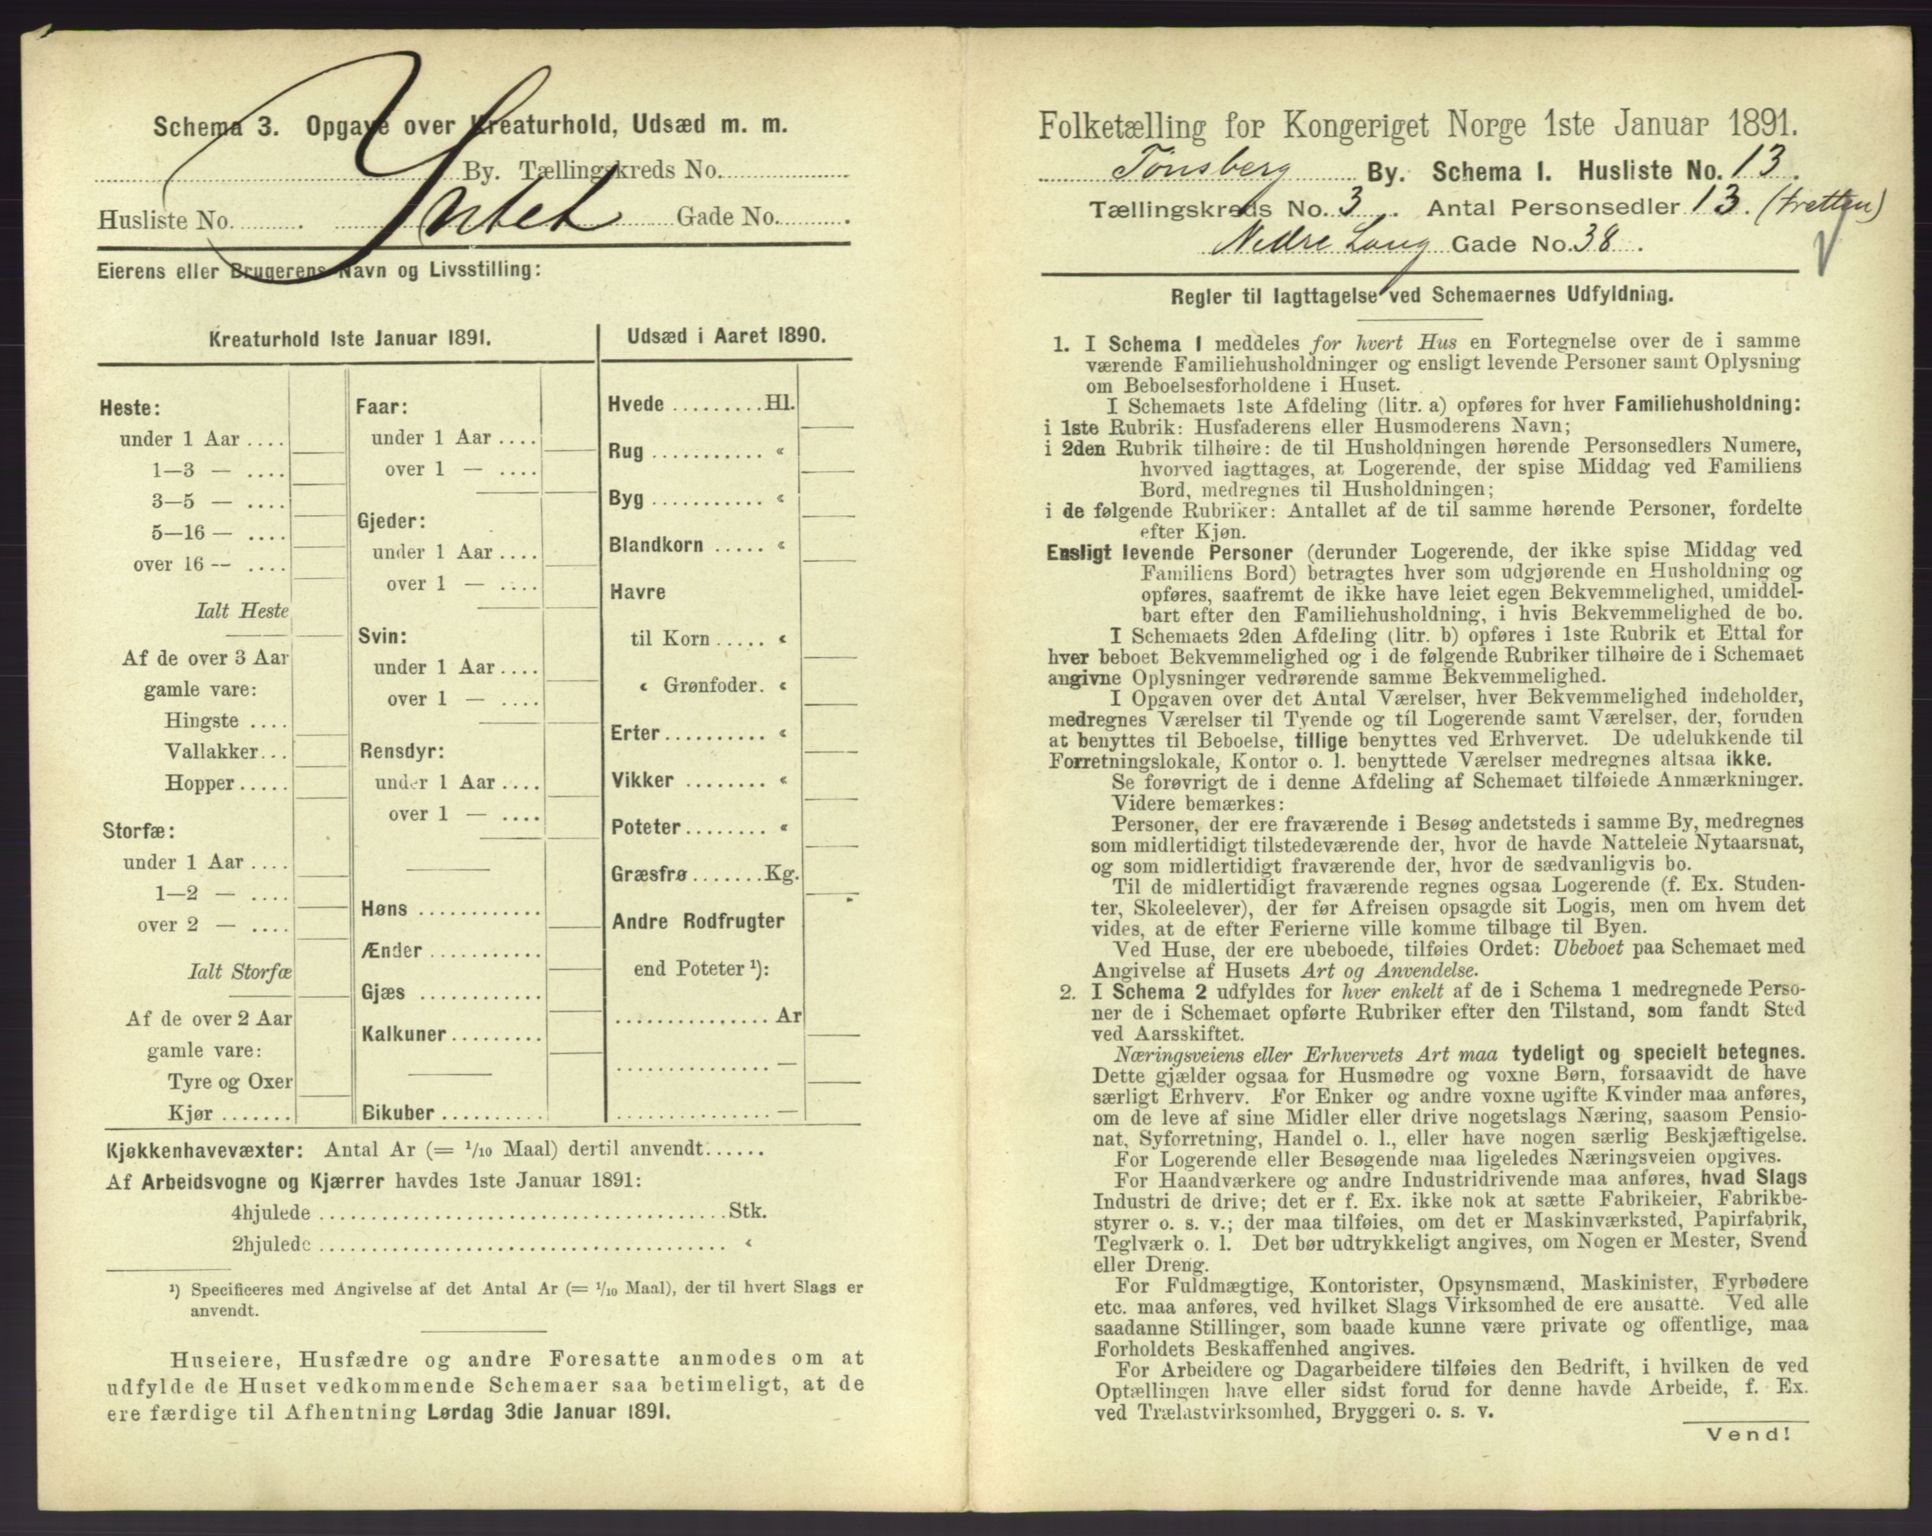 Schema 3. Opgave over Kreaturhold, Udsæd m. m.
By. Tællingskreds No.
Husliste No. Intet Gade No.
Eierens eller Brugerens Navn og Livsstilling:
Kreaturhold 1ste Januar 1891.
Heste:
under 1 Aar ....
1—3 — ....
3—5 — ....
5—16 — ....
over 16 — ....
Ialt Heste
Af de over 3 Aar
gamle vare:
Hingste ....
Vallakker...
Hopper.....
Storfæ:
under 1 Aar ....
1—2 — ....
over 2 — ....
Ialt Storfæ
Af de over 2 Aar
gamle vare:
Tyre og Oxer
Kjør .......
Faar:
under 1 Aar ....
over 1 — ....
Gjeder:
under 1 Aar ....
over 1 — ....
Svin:
under 1 Aar ....
over 1 — ....
Rensdyr:
under 1 Aar ....
over 1 — ....
Høns ............
Ænder ...........
Gjæs ............
Kalkuner .........
Bikuber ..........
Udsæd i Aaret 1890.
Hvede .........Hl.
Rug ........... «
Byg ........... «
Blandkorn ..... «
Havre
til Korn ..... «
« Grønfoder. «
Erter.......... «
Vikker ........ «
Poteter........ «
Græsfrø .......Kg.
Andre Rodfrugter
end Poteter ¹):
............... Ar
............... —
............... —
Kjøkkenhavevæxter: Antal Ar (= 1/10 Maal) dertil anvendt......
Af Arbeidsvogne og Kjærrer havdes 1ste Januar 1891:
4hjulede ......................................Stk.
2hjulede ...................................... «
¹) Specificeres med Angivelse af det Antal Ar (= 1/10 Maal), der til hvert Slags er
anvendt.
Huseiere, Husfædre og andre Foresatte anmodes om at
udfylde de Huset vedkommende Schemaer saa betimeligt, at de
ere færdige til Afhentning Lørdag 3die Januar 1891.
Folketælling for Kongeriget Norge 1ste Januar 1891.
Tønsberg By. Schema 1. Husliste No. 13.
Tællingskreds No. 3. Antal Personsedler 13. (tretten)
Nedre Lang Gade No. 38.
Regler til Iagttagelse ved Schemaernes Udfyldning.
1. I Schema 1 meddeles for hvert Hus en Fortegnelse over de i samme
værende Familiehusholdninger og ensligt levende Personer samt Oplysning
om Beboelsesforholdene i Huset.
I Schemaets 1ste Afdeling (litr. a) opføres for hver Familiehusholdning:
i 1ste Rubrik: Husfaderens eller Husmoderens Navn;
i 2den Rubrik tilhøire: de til Husholdningen hørende Personsedlers Numere,
hvorved iagttages, at Logerende, der spise Middag ved Familiens
Bord, medregnes til Husholdningen;
i de følgende Rubriker: Antallet af de til samme hørende Personer, fordelte
efter Kjøn.
Ensligt levende Personer (derunder Logerende, der ikke spise Middag ved
Familiens Bord) betragtes hver som udgjørende en Husholdning og
opføres, saafremt de ikke have leiet egen Bekvemmelighed, umiddel-
bart efter den Familiehusholdning, i hvis Bekvemmelighed de bo.
I Schemaets 2den Afdeling (litr. b) opføres i 1ste Rubrik et Ettal for
hver beboet Bekvemmelighed og i de følgende Rubriker tilhøire de i Schemaet
angivne Oplysninger vedrørende samme Bekvemmelighed.
I Opgaven over det Antal Værelser, hver Bekvemmelighed indeholder,
medregnes Værelser til Tyende og til Logerende samt Værelser, der, foruden
at benyttes til Beboelse, tillige benyttes ved Erhvervet. De udelukkende til
Forretningslokale, Kontor o. l. benyttede Værelser medregnes altsaa ikke.
Se forøvrigt de i denne Afdeling af Schemaet tilføiede Anmærkninger.
Videre bemærkes:
Personer, der ere fraværende i Besøg andetsteds i samme By, medregnes
som midlertidigt tilstedeværende der, hvor de havde Natteleie Nytaarsnat,
og som midlertidigt fraværende der, hvor de sædvanligvis bo.
Til de midlertidigt fraværende regnes ogsaa Logerende (f. Ex. Studen-
ter, Skoleelever), der før Afreisen opsagde sit Logis, men om hvem det
vides, at de efter Ferierne ville komme tilbage til Byen.
Ved Huse, der ere ubeboede, tilføies Ordet: Ubeboet paa Schemaet med
Angivelse af Husets Art og Anvendelse.
2. I Schema 2 udfyldes for hver enkelt af de i Schema 1 medregnede Perso-
ner de i Schemaet opførte Rubriker efter den Tilstand, som fandt Sted
ved Aarsskiftet.
Næringsveiens eller Erhvervets Art maa tydeligt og specielt betegnes.
Dette gjælder ogsaa for Husmødre og voxne Børn, forsaavidt de have
særligt Erhverv. For Enker og andre voxne ugifte Kvinder maa anføres,
om de leve af sine Midler eller drive nogetslags Næring, saasom Pensio-
nat, Syforretning, Handel o. l., eller have nogen særlig Beskjæftigelse.
For Logerende eller Besøgende maa ligeledes Næringsveien opgives.
For Haandværkere og andre Industridrivende maa anføres, hvad Slags
Industri de drive; det er f. Ex. ikke nok at sætte Fabrikeier, Fabrikbe-
styrer o. s. v.; der maa tilføies, om det er Maskinværksted, Papirfabrik,
Teglværk o. l. Det bør udtrykkeligt angives, om Nogen er Mester, Svend
eller Dreng.
For Fuldmægtige, Kontorister, Opsynsmænd, Maskinister, Fyrbødere
etc. maa anføres, ved hvilket Slags Virksomhed de ere ansatte. Ved alle
saadanne Stillinger, som baade kunne være private og offentlige, maa
Forholdets Beskaffenhed angives.
For Arbeidere og Dagarbeidere tilføies den Bedrift, i hvilken de ved
Optællingen have eller sidst forud for denne havde Arbeide, f. Ex.
ved Trælastvirksomhed, Bryggeri o. s. v.
Vend!